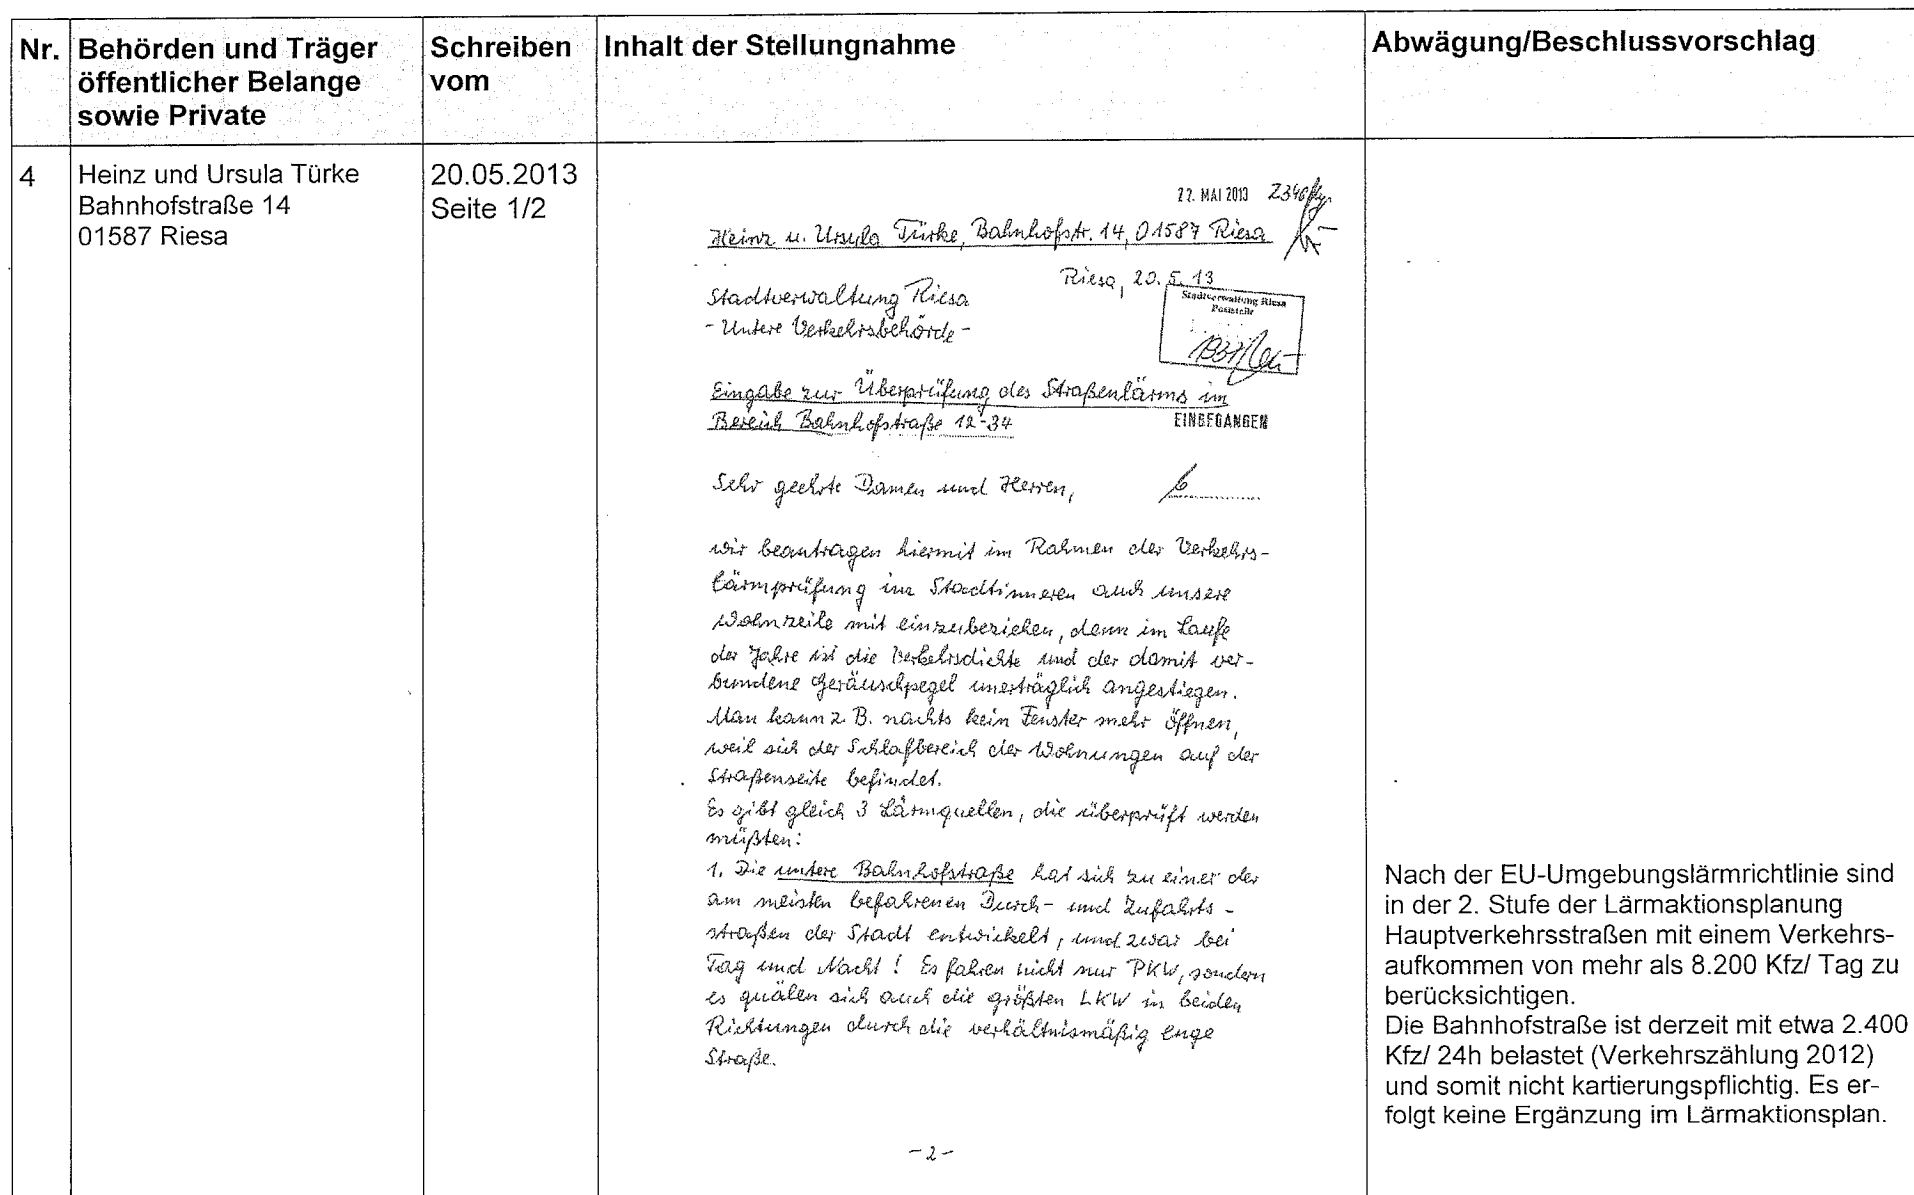 Nr.
Behörden und Träger
öffentlicher Belange
sowie Private
Schreiben
vom
Inhalt der Stellungnahme
Abwägung/Beschlussvorschlag
4
Heinz und Ursula Türke
Bahnhofstraße 14
01587 Riesa
20.05.2013
Seite 1/2
22. MAI 2013
Heinz u. Ursula Türke, Bahnhofstr. 14, 01587 Riesa
Riesa, 20.5.13
Stadtverwaltung Riesa
Poststelle
Stadtverwaltung Riesa
- Untere Verkehrsbehörde -
Eingabe zur Überprüfung des Straßenlärms im
Bereich Bahnhofstraße 12-34
EINGEGANGEN
Sehr geehrte Damen und Herren,
wir beantragen hiermit im Rahmen der Verkehrs-
lärmprüfung im Stadtinneren auch unsere
Wohnzeile mit einzubeziehen, denn im Laufe
der Jahre ist die Verkehrsdichte und der damit ver-
bundene Geräuschpegel unerträglich angestiegen.
Man kann z. B. nachts kein Fenster mehr öffnen,
weil sich der Schlafbereich der Wohnungen auf der
Straßenseite befindet.
Es gibt gleich 3 Lärmquellen, die überprüft werden
müßten:
1. Die untere Bahnhofstraße hat sich zu einer der
am meisten befahrenen Durch- und Zufahrts-
straßen der Stadt entwickelt, und zwar bei
Tag und Nacht! Es fahren nicht nur PKW, sondern
es quälen sich auch die größten LKW in beiden
Richtungen durch die verhältnismäßig enge
Straße.
-2-
Nach der EU-Umgebungslärmrichtlinie sind
in der 2. Stufe der Lärmaktionsplanung
Hauptverkehrsstraßen mit einem Verkehrs-
aufkommen von mehr als 8.200 Kfz/ Tag zu
berücksichtigen.
Die Bahnhofstraße ist derzeit mit etwa 2.400
Kfz/ 24h belastet (Verkehrszählung 2012)
und somit nicht kartierungspflichtig. Es er-
folgt keine Ergänzung im Lärmaktionsplan.